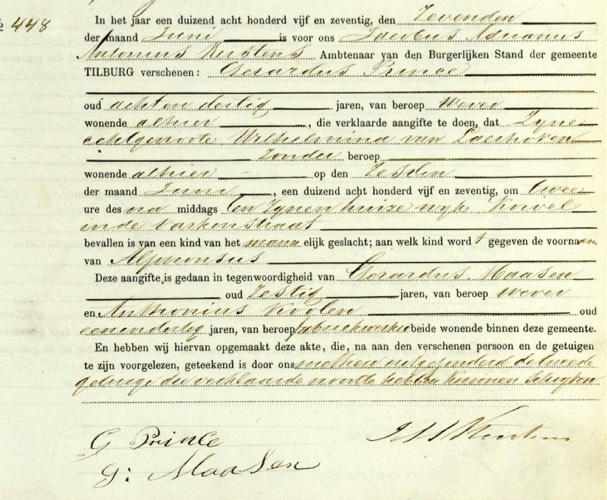 № 448
In het jaar een duizend acht honderd vijf en zeventig, den Zevenden
der maand Juni is voor ons Jacobus Adrianus
Antonius Ambtenaar van den Burgerlijken Stand der gemeente
TILBURG verschenen: Gerardus Prince
oud achten dertig jaren, van beroep Wever
wonende alhier, die verklaarde aangifte te doen, dat Zijne
echtgenoote Wilhelmina van Laarhoven
Zonder beroep
wonende alhier op den Zesden
der maand Juni, een duizend acht honderd vijf en zeventig, om twee
ure des na middags ten Zijnen huize wijk
in de Varkenstraat
bevallen is van een kind van het mann elijk geslacht; aan welk kind wordt gegeven de voornaam
van Alphonsus
Deze aangifte is gedaan in tegenwoordigheid van Gerardus Maasen
oud Zestig jaren, van beroep Wever
en Anthonius oud
eenendertig jaren, van beroep fabriekwerker beide wonende binnen deze gemeente.
En hebben wij hiervan opgemaakt deze akte, die, na aan den verschenen persoon en de getuigen
te zijn voorgelezen, geteekend is door ons en hen uitgezonderd de tweede
getuige die verklaarde nooit te hebben kunnen schrijven
G Prince
G: Maasen